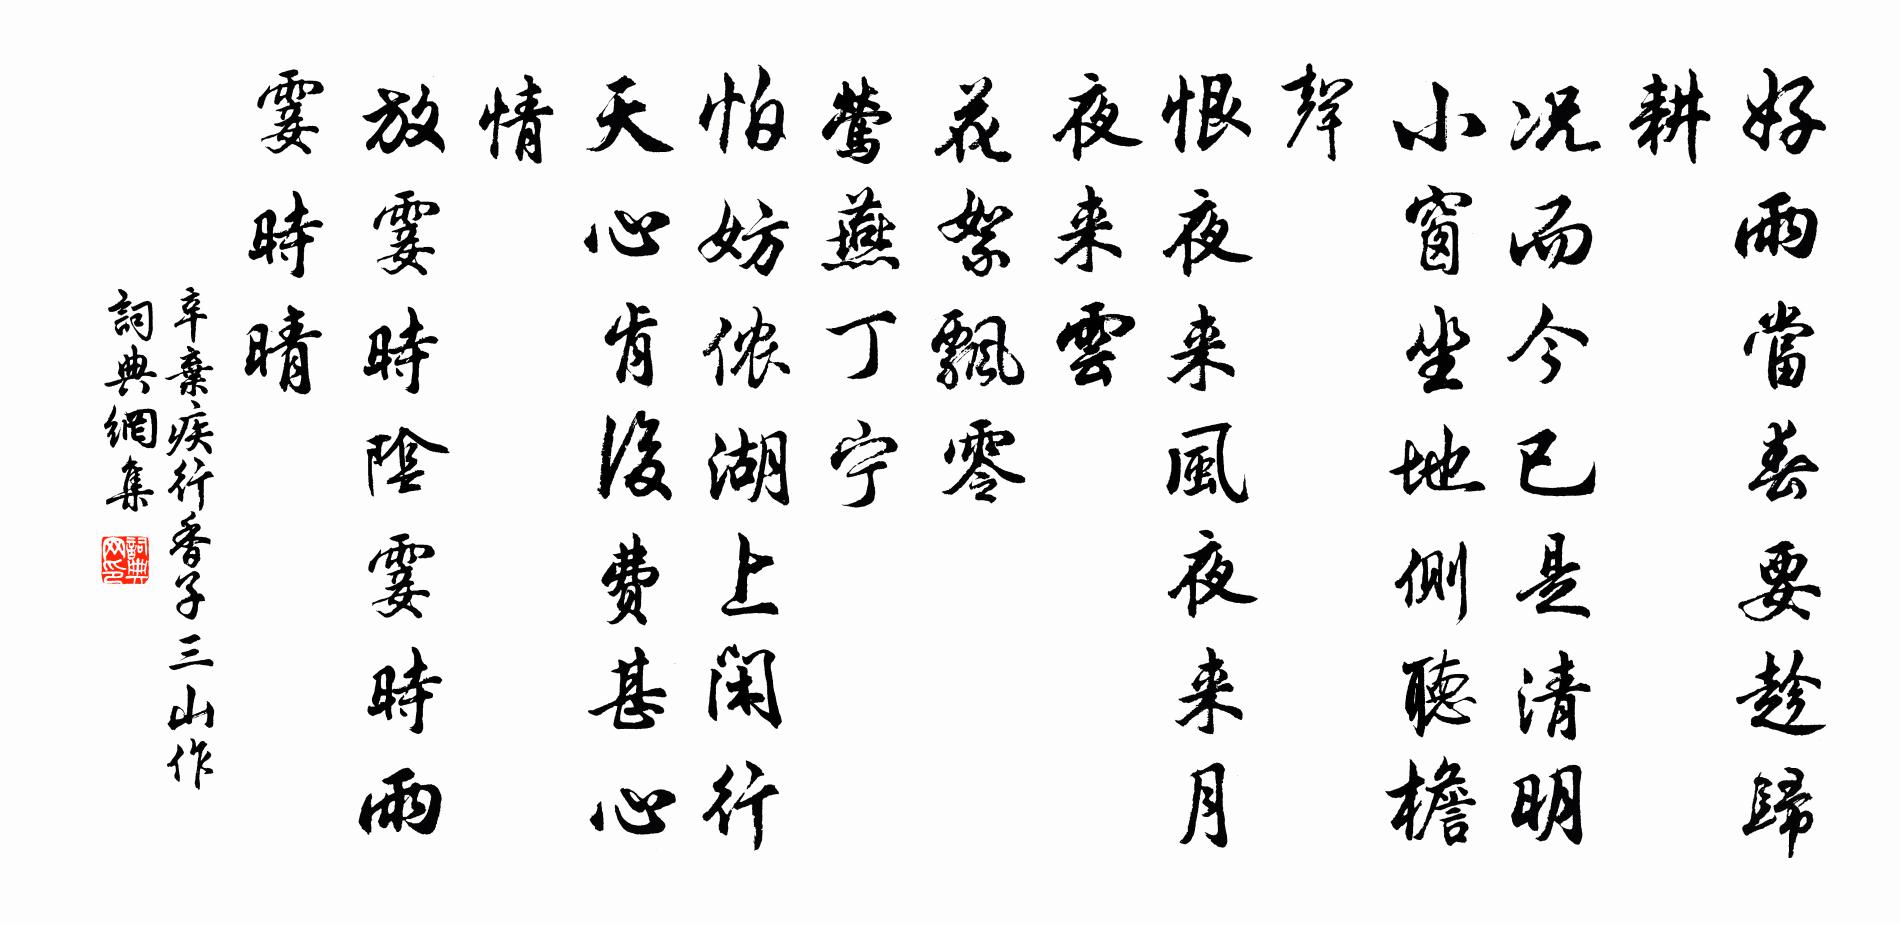 好雨當春要趁歸
耕
况而今已是清明
小窗坐地側聽檐
聲
恨夜来風夜来月
夜来雲
花絮飄零
鶯燕丁宁
怕妨侬湖上閑行
天心肯後費甚心
情
放霎時陰霎時雨
霎時晴
辛棄疾行香子三山作
詞典網集
詞典网印